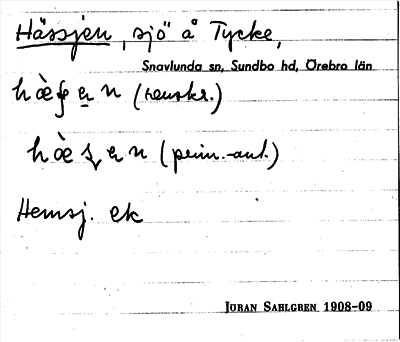 Hässjen, sjö å Tycke,
Snavlunda sn, Sundbo hd, Örebro län
(renskr.)
(prim.-ant.)
Hemsj. ek
JÖRAN SAHLGREN 1908-09